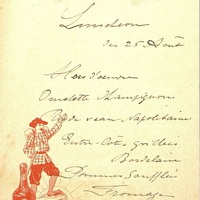 Luncheon
des 25 Août
Hors d'oeuvre
Omelette Champignon
de veau Napolitaine
Entre-Côtes Grillées
Bordelais
Pommes Soufflées
Fromage